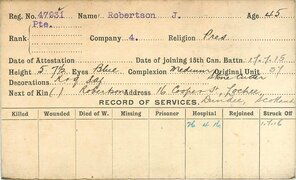 Reg. No. 47931 Name Robertson J. Age 45
Rank Pte. Company 4. Religion Pres
Date of Attestation Date of joining 15th Can. Battn.
Height 5 7½ Eyes Blue Complexion Medium Original Unit
Decorations
Next of Kin ( ) Robertson Address 16 Cooper St, Lochee,
Dundee, Scotland
RECORD OF SERVICES.
Killed Wounded Died of W. Missing Prisoner Hospital Rejoined Struck Off
26 4 16 1.7.16